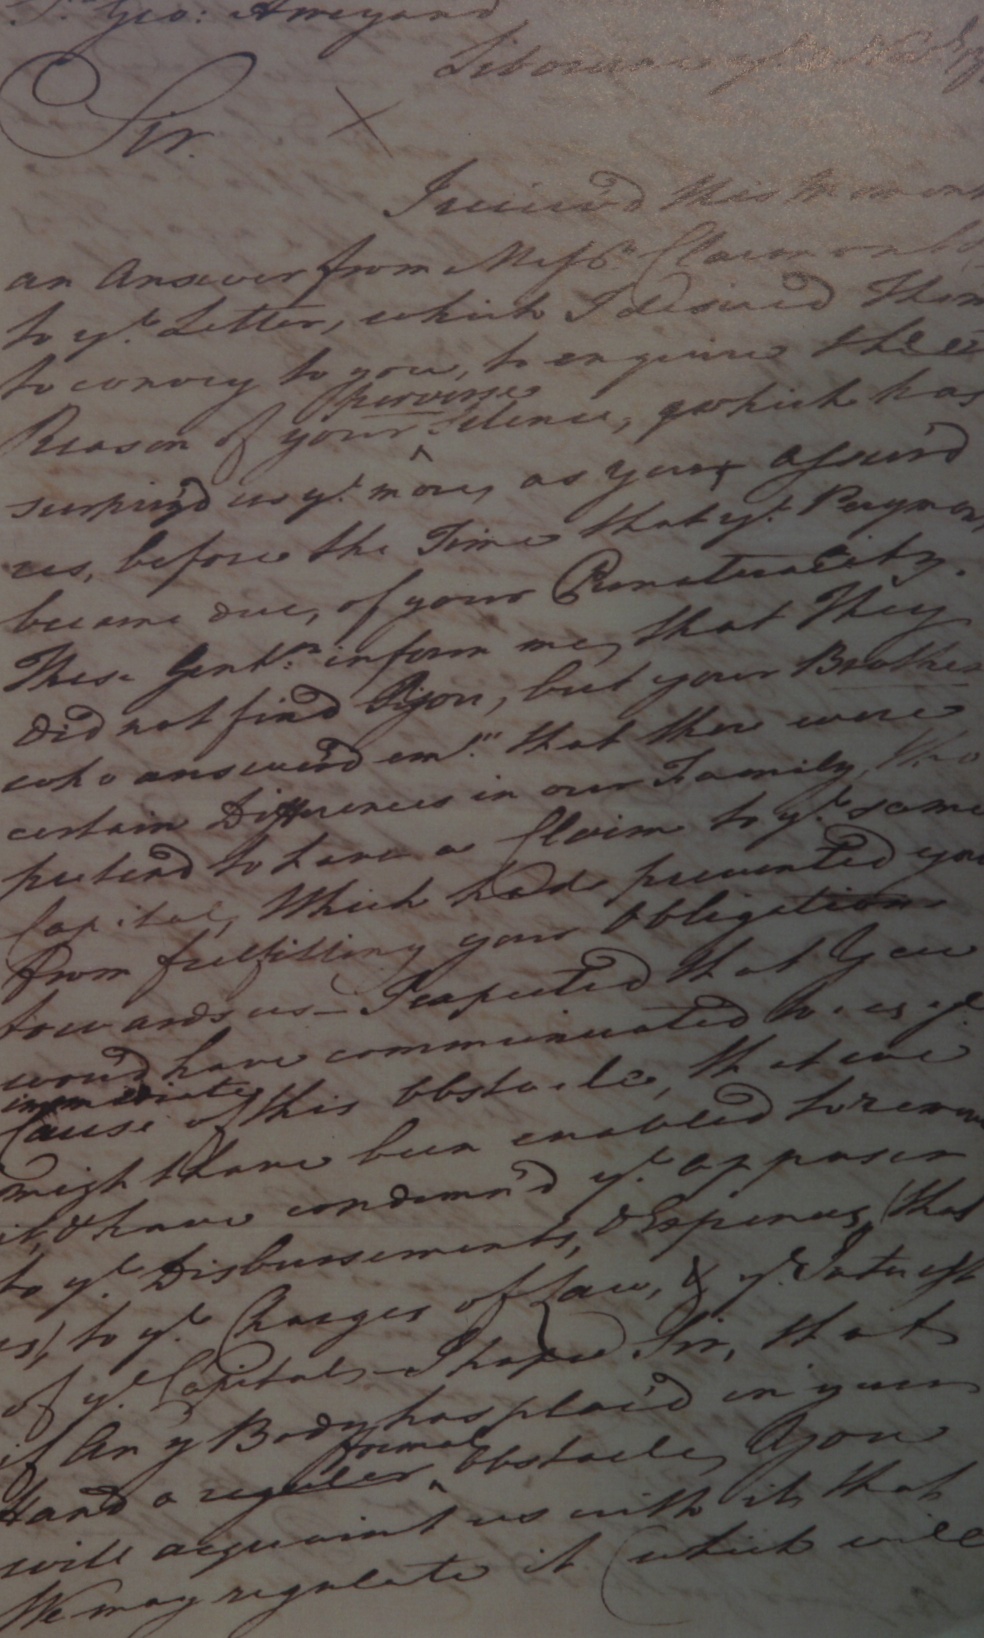 Geo: Amyand
Sir.
I receiv'd this Moment
an Answer from Mess.rs
to y.e Letter, which I desired Them
to convey to you, to enquire the
perverse
Reason of your Silence, which has
surpriz'd us y.e more, as you assur'd
us, before the Time that y.e Paymen
became due, of your Punctuality.
These Gent.n inform me, that They
did not find you, but your Brother
who answer'd em "that there were
certain Differences in our Family, who
pretend to have a Claim to y.e same
Capital, Which had prevented you
from fulfilling your Obligations
towards us— I expected that You
wou'd have communicated to us y.e
immediate
Cause of this Obstacle, that we
might have been enabled to remove
it, & have condemn'd y.e opposer
to y.e Disbursements, & Expences, (that
is,) to y.e Charges of Law, & y.e Interest
of y.e Capital— I hope Sir, that
if Any Body has plac'd in your
formal
Hand a regular Obstacle, You
will acquaint us with it, that
We may regulate it (which will